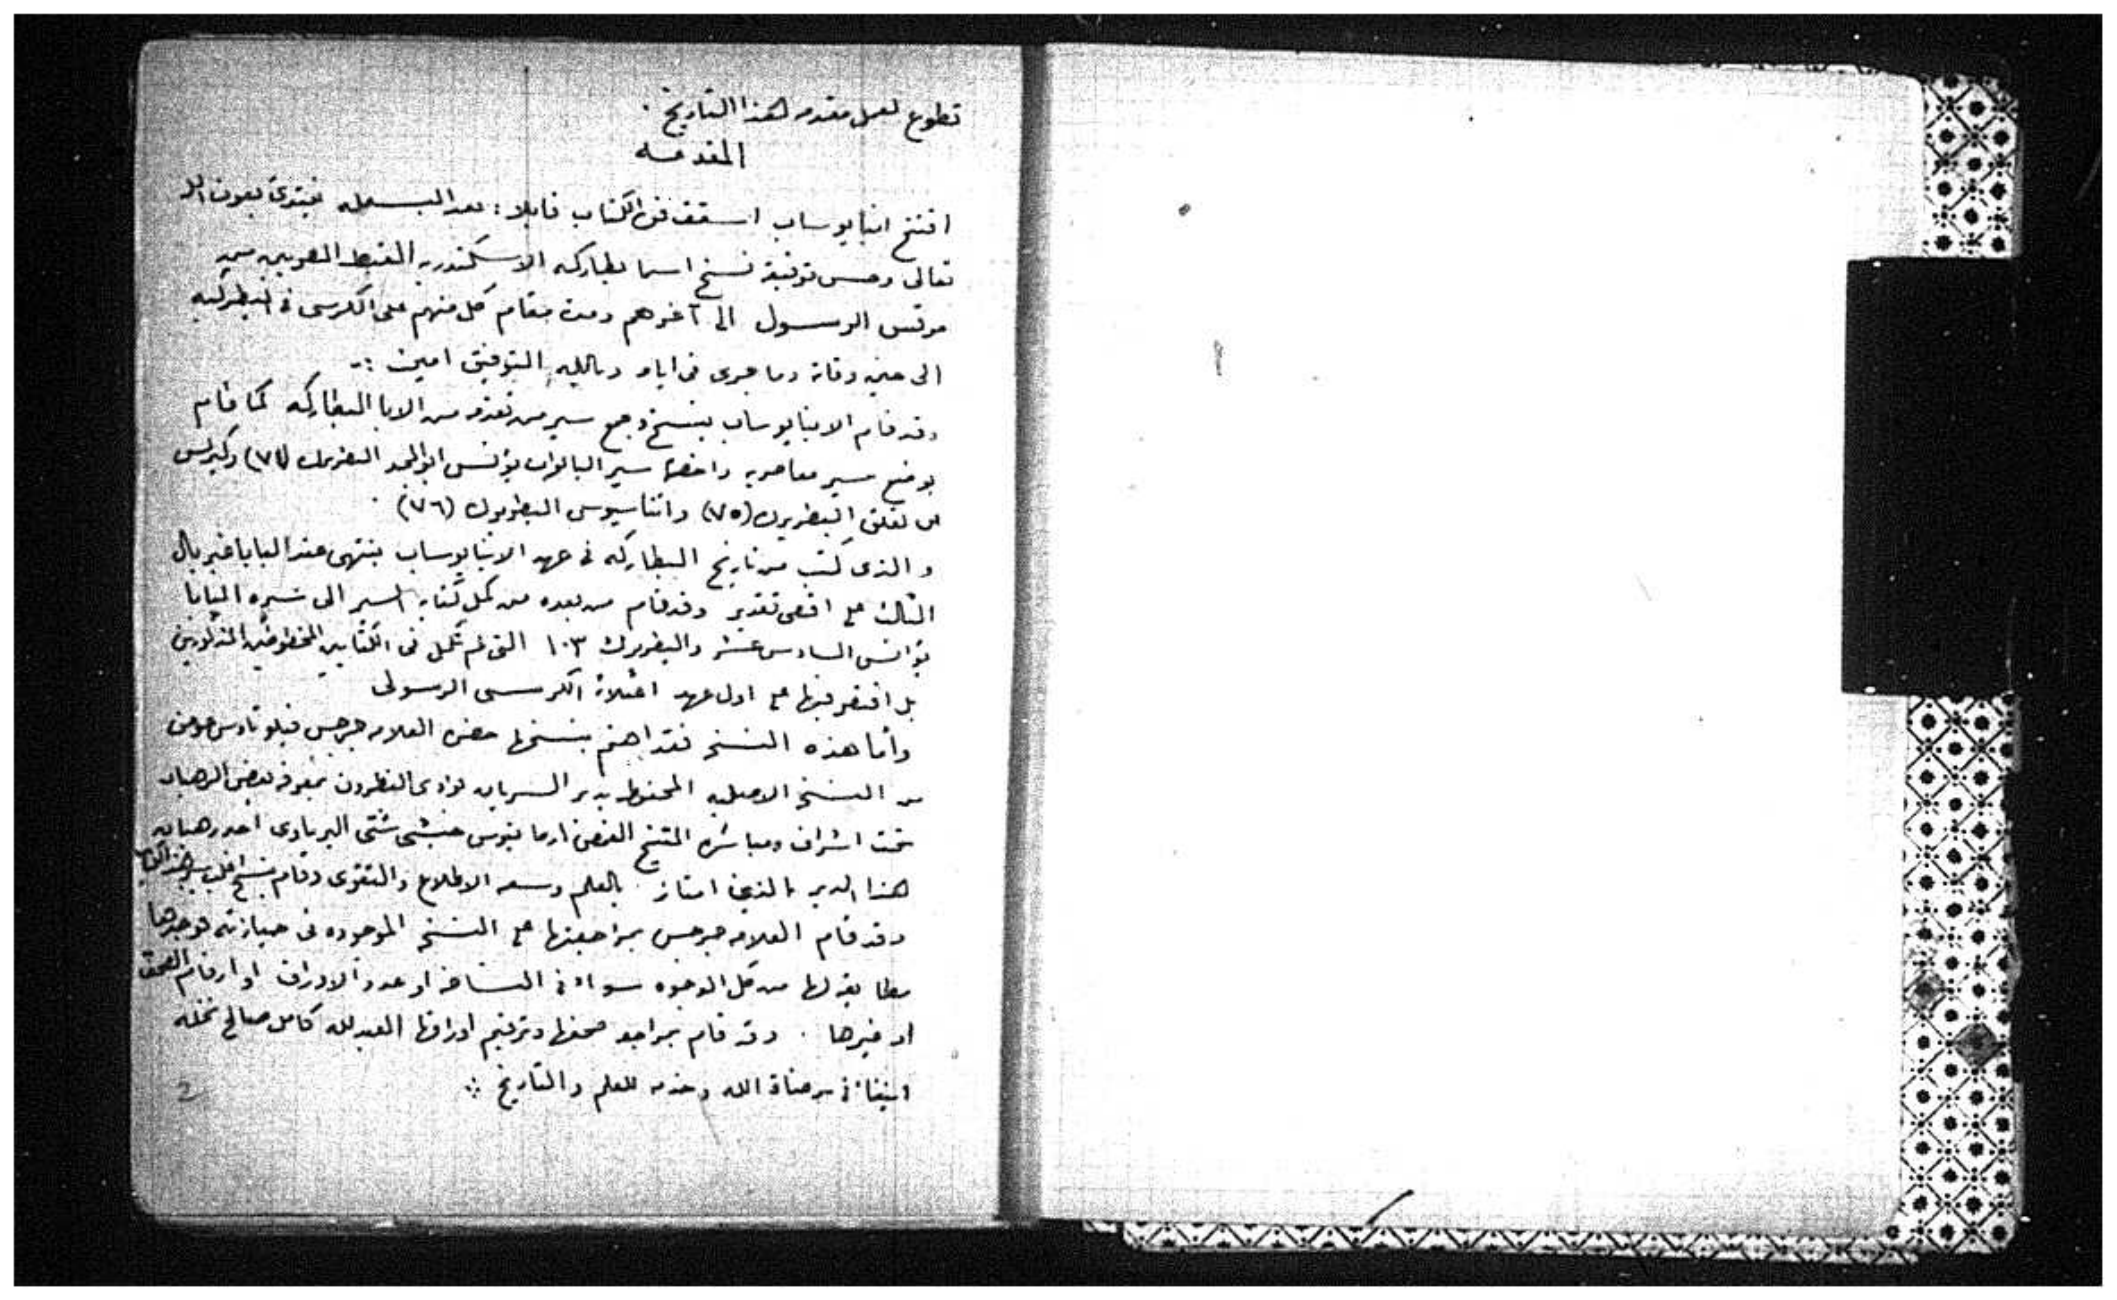 تطوع لعمل مقدمه لهذا التاريخ .
المقدمــه
افتتح انبا يوساب اسقف فوه الكتاب قايلا : بعد البسمله نبتدئ بعون الله
تعالى وحسن توفيقه نسخ اسما بطاركه الاسكندريه القبط المصريين من
مرقس الرسول الى آخرهم ومدة مقام كل منهم على الكرسى فى البطركيه
الى حين وفاته وما جرى فى ايامه وبالله التوفيق امين :ـ
وقد قام الانبا يوساب بنسخ وجمع سير من تقدمه من الابا البطاركه كما قام
بوضع سير معاصريه واخصها سير الباباوات يؤنس ابو المجد البطريرك (٧٤) وكيرلس
ابن لقلق البطريرك (٧٥) واثناسيوس البطريرك (٧٦) .
والذى كتب من تاريخ البطاركه فى عهد الانبا يوساب ينتهى عند البابا غبريال
الثالث على اقصى تقدير وقد قام من بعده من كمل كتابه السير الى سيره البابا
يؤانس السادس عشر والبطريرك ١٠٣ التى لم تكمل فى الكتابين المخطوطين المذكورين
بل اقتصر فيها على اول عهد اعتلاؤه الكرسى الرسولى
وأما هذه النسخه فقد اهتم بنسخها حضره العلامه جرجس فيلوثاوس عوض
من النسخه الاصليه المحفوظه بدير السريان بوادى النطرون بمعرفه بعض الرهبان
تحت اشراف ومباشره المتنيح القمص ارمانيوس حبشى شتى البرماوى احد رهبان
هذا الدير الذين امتاز بالعلم وسعه الاطلاع والتقوى وقام بنسخ هذا الكتاب
وقد قام العلامه جرجس بمراجعتها على النسخه الموجوده فى حيازته فوجدها
مطابقه لها من كل الوجوه سواء فى النساخه او عدد الاوراق او ارقام الصحف
او غيرها . وقد قام بمراجعه صحفها وترقيم اوراقها العبد لله كامل صالح نخله
ابتغاءً فى مرضاة الله وخدمه للعلم والتاريخ ⁘
2